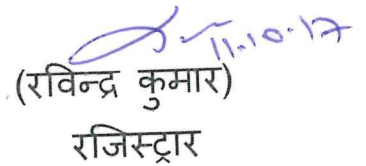 11.10.17
(रविन्द्र कुमार)
रजिस्ट्रार